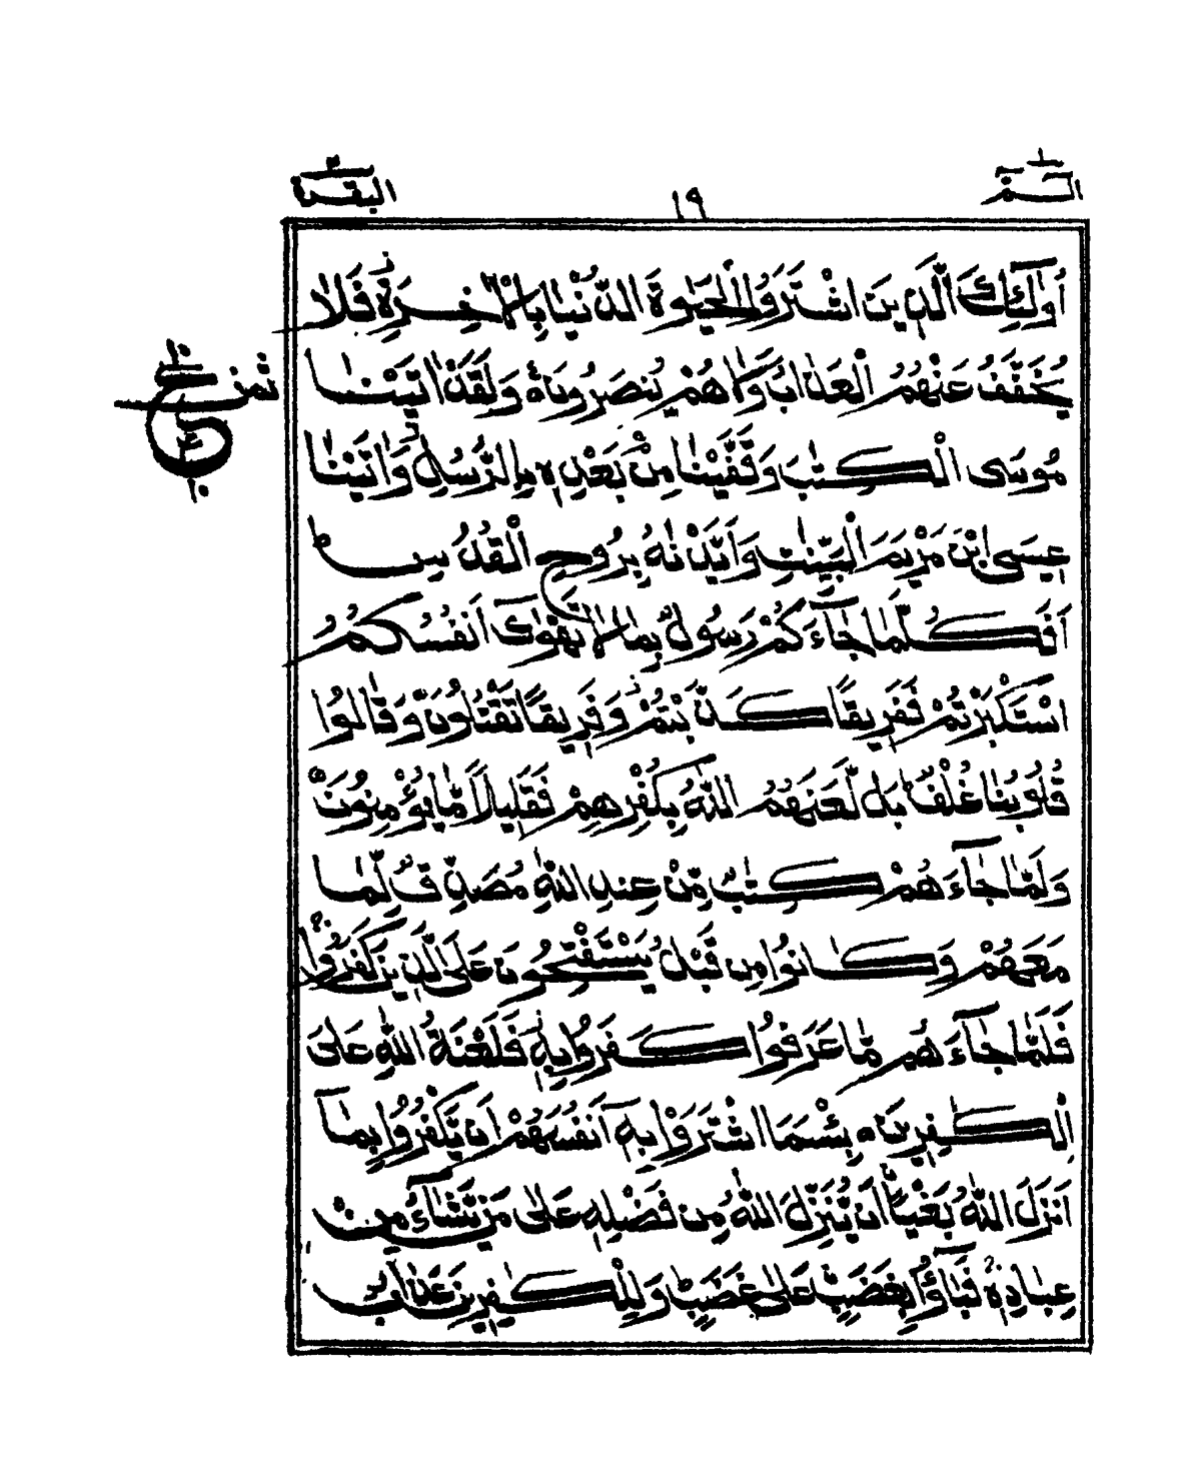 الٓمٓ ١
١٩
البقرة ٢
اُولٰٓئِكَ الَّذِيْنَ اشْتَرَوُا الْحَيٰوةَ الدُّنْيَا بِالْاٰخِرَةِ فَلَا
يُخَفَّفُ عَنْهُمُ الْعَذَابُ وَلَا هُمْ يُنْصَرُوْنَ وَلَقَدْ اٰتَيْنَا
ثمن
ع
١٠
١٠
مُوْسَى الْكِتٰبَ وَقَفَّيْنَا مِنْۢ بَعْدِهٖ بِالرُّسُلِ وَاٰتَيْنَا
عِيْسَى ابْنَ مَرْيَمَ الْبَيِّنٰتِ وَاَيَّدْنٰهُ بِرُوْحِ الْقُدُسِ ط
اَفَكُلَّمَا جَآءَكُمْ رَسُوْلٌۢ بِمَا لَا تَهْوٰٓى اَنْفُسُكُمُ
اسْتَكْبَرْتُمْ فَفَرِيْقًا كَذَّبْتُمْ وَفَرِيْقًا تَقْتُلُوْنَ وَقَالُوْا
قُلُوْبُنَا غُلْفٌ بَلْ لَّعَنَهُمُ اللّٰهُ بِكُفْرِهِمْ فَقَلِيْلًا مَّا يُؤْمِنُوْنَ
وَلَمَّا جَآءَهُمْ كِتٰبٌ مِّنْ عِنْدِ اللّٰهِ مُصَدِّقٌ لِّمَا
مَعَهُمْ وَكَانُوْا مِنْ قَبْلُ يَسْتَفْتِحُوْنَ عَلَى الَّذِيْنَ كَفَرُوْا
فَلَمَّا جَآءَهُمْ مَّا عَرَفُوْا كَفَرُوْا بِهٖ فَلَعْنَةُ اللّٰهِ عَلَى
الْكٰفِرِيْنَ بِئْسَمَا اشْتَرَوْا بِهٖٓ اَنْفُسَهُمْ اَنْ يَّكْفُرُوْا بِمَآ
اَنْزَلَ اللّٰهُ بَغْيًا اَنْ يُّنَزِّلَ اللّٰهُ مِنْ فَضْلِهٖ عَلٰى مَنْ يَّشَآءُ مِنْ
عِبَادِهٖ فَبَآءُوْ بِغَضَبٍ عَلٰى غَضَبٍ وَلِلْكٰفِرِيْنَ عَذَابٌ